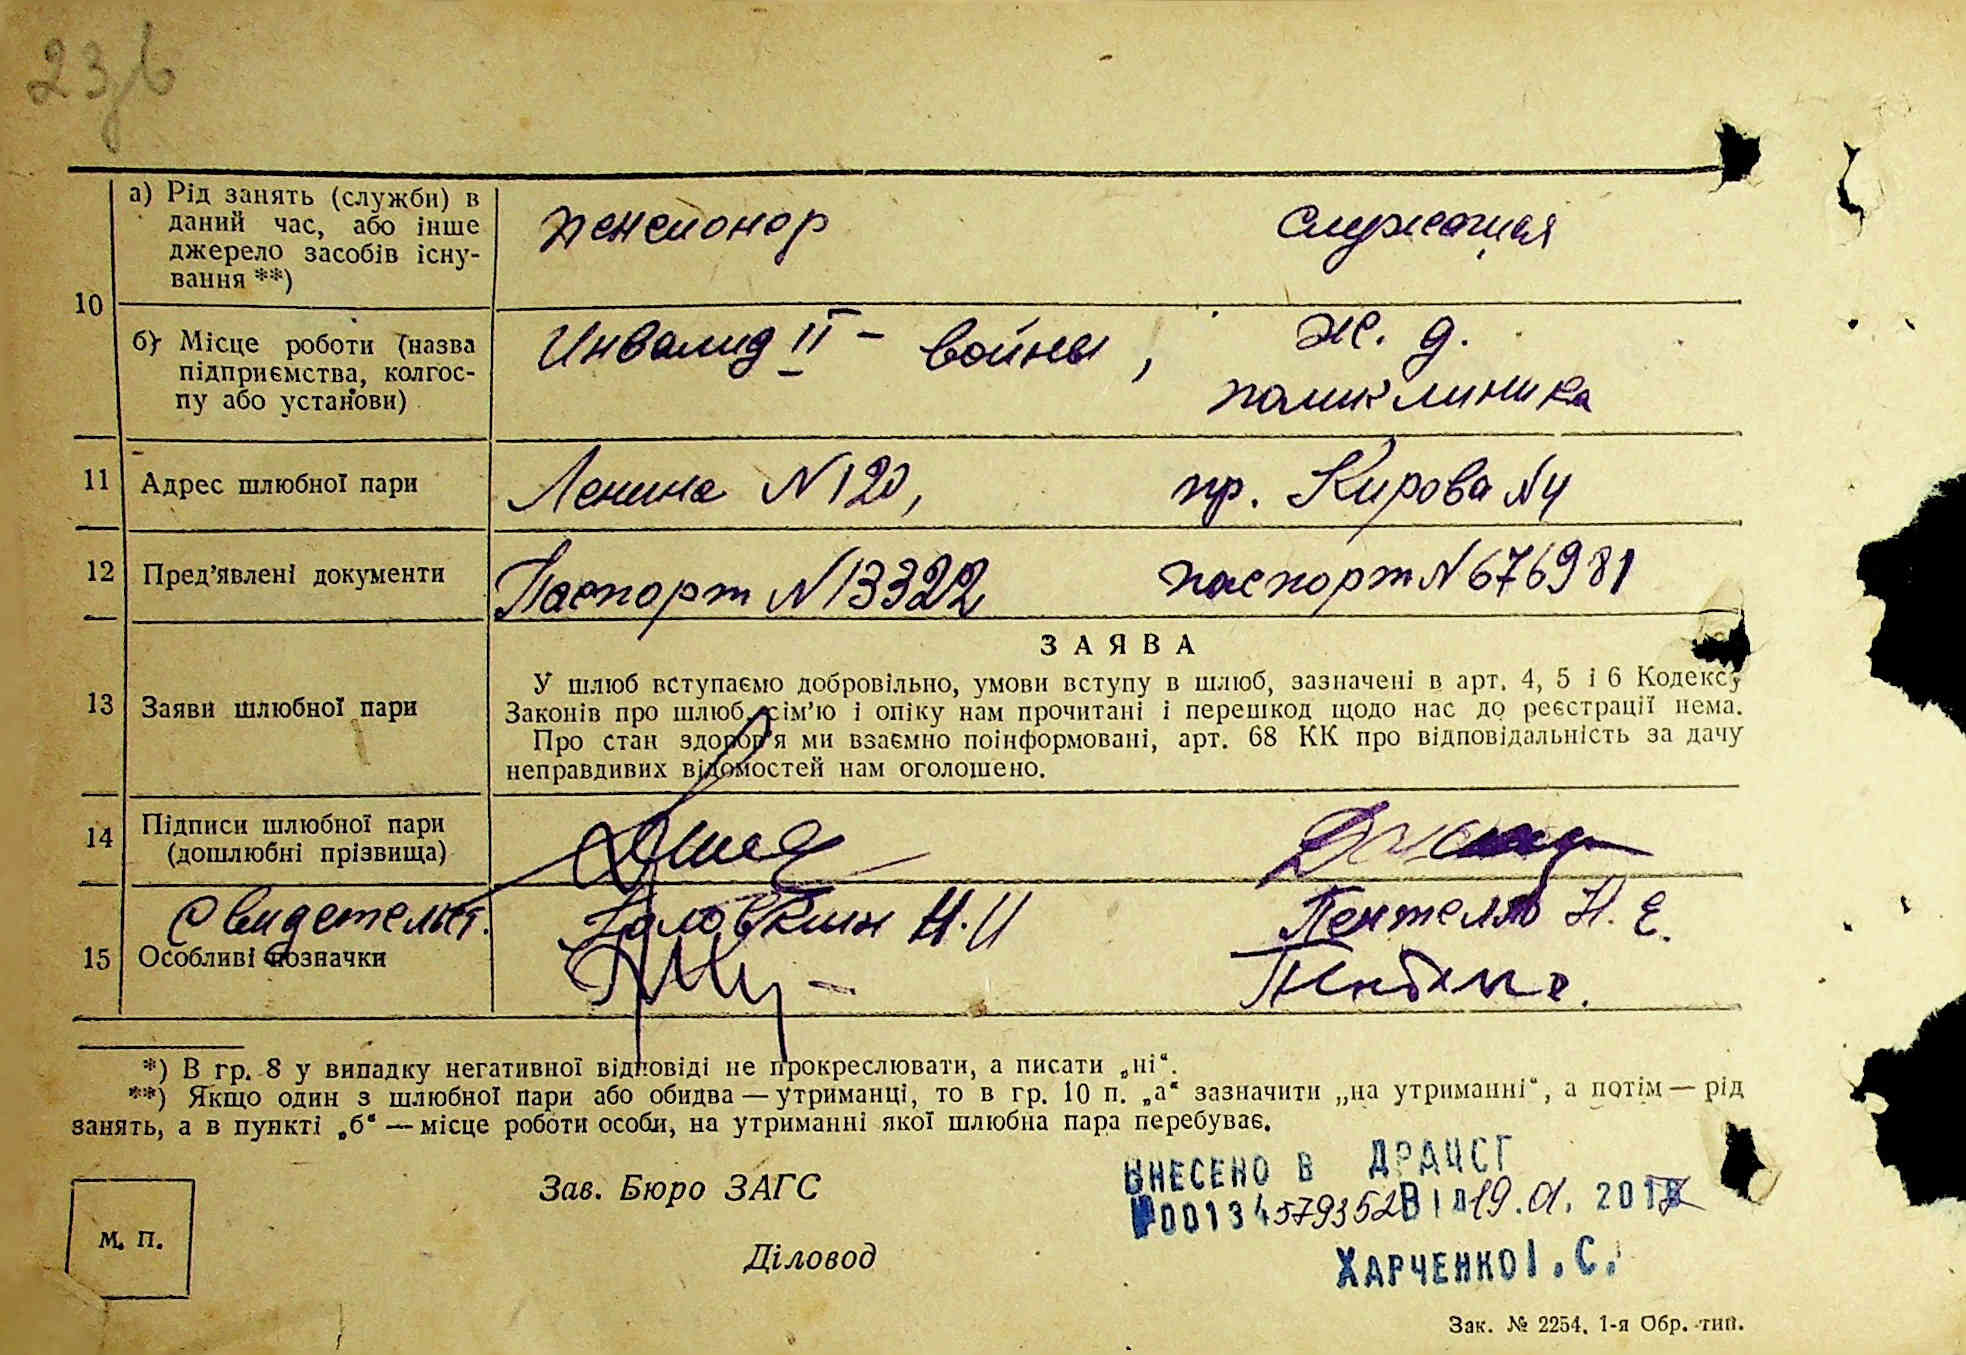 23/в
а) Рід занять (служби) в
даний час, або інше
джерело засобів існу-
вання **)
пенсионер
служащая
10
б) Місце роботи (назва
підприємства, колгос-
пу або установи)
Инвалид II – войны,
ж. д.
поликлиника
11 Адрес шлюбної пари
Ленина N 120,
пр. Кирова N 4
12 Пред’явлені документи
Паспорт N 13322
паспорт N 676981
ЗАЯВА
13 Заяви шлюбної пари
У шлюб вступаємо добровільно, умови вступу в шлюб, зазначені в арт. 4, 5 і 6 Кодексу
Законів про шлюб, сім’ю і опіку нам прочитані і перешкод щодо нас до реєстрації нема.
Про стан здоров’я ми взаємно поінформовані, арт. 68 КК про відповідальність за дачу
неправдивих відомостей нам оголошено.
14 Підписи шлюбної пари
(дошлюбні прізвища)
Свидетели.
Головкин Н. И
Н. Е.
15 Особливі позначки
*) В гр. 8 у випадку негативної відповіді не прокреслювати, а писати „ні“.
**) Якщо один з шлюбної пари або обидва — утриманці, то в гр. 10 п. „а“ зазначити „на утриманні“, а потім — рід
занять, а в пункті „б“ — місце роботи особи, на утриманні якої шлюбна пара перебуває.
Зав. Бюро ЗАГС
ВНЕСЕНО В ДРАЦСГ
№00134579352 ВІД 19.01.2017
М. П.
Діловод
ХАРЧЕНКО І. С.
Зак. № 2254. 1-я Обр. тип.